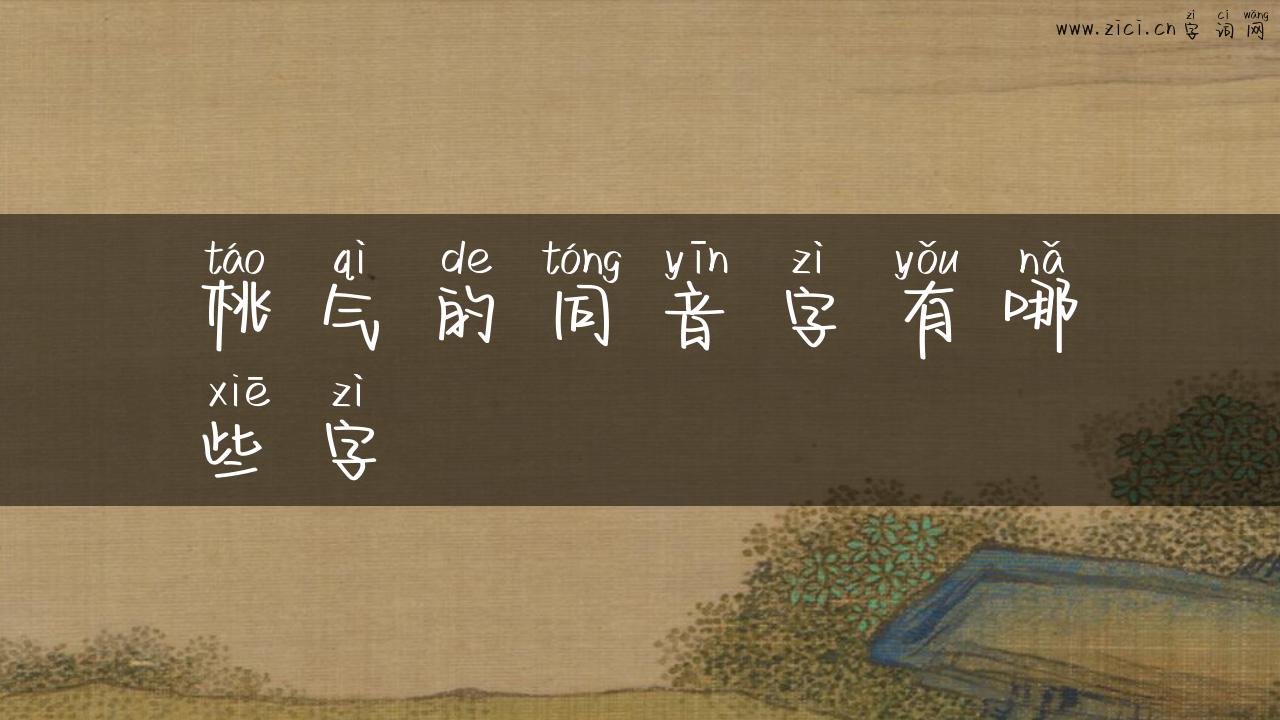 zì cí wǎng
www.zici.cn 字词网
táo qì de tóng yīn zì yǒu nǎ
桃气的同音字有哪
xiē zì
些字